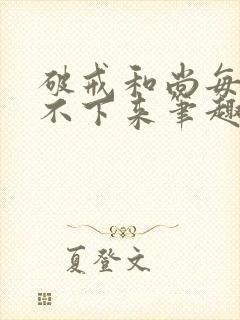 破戒和尚每
不下来笔趣
夏登文